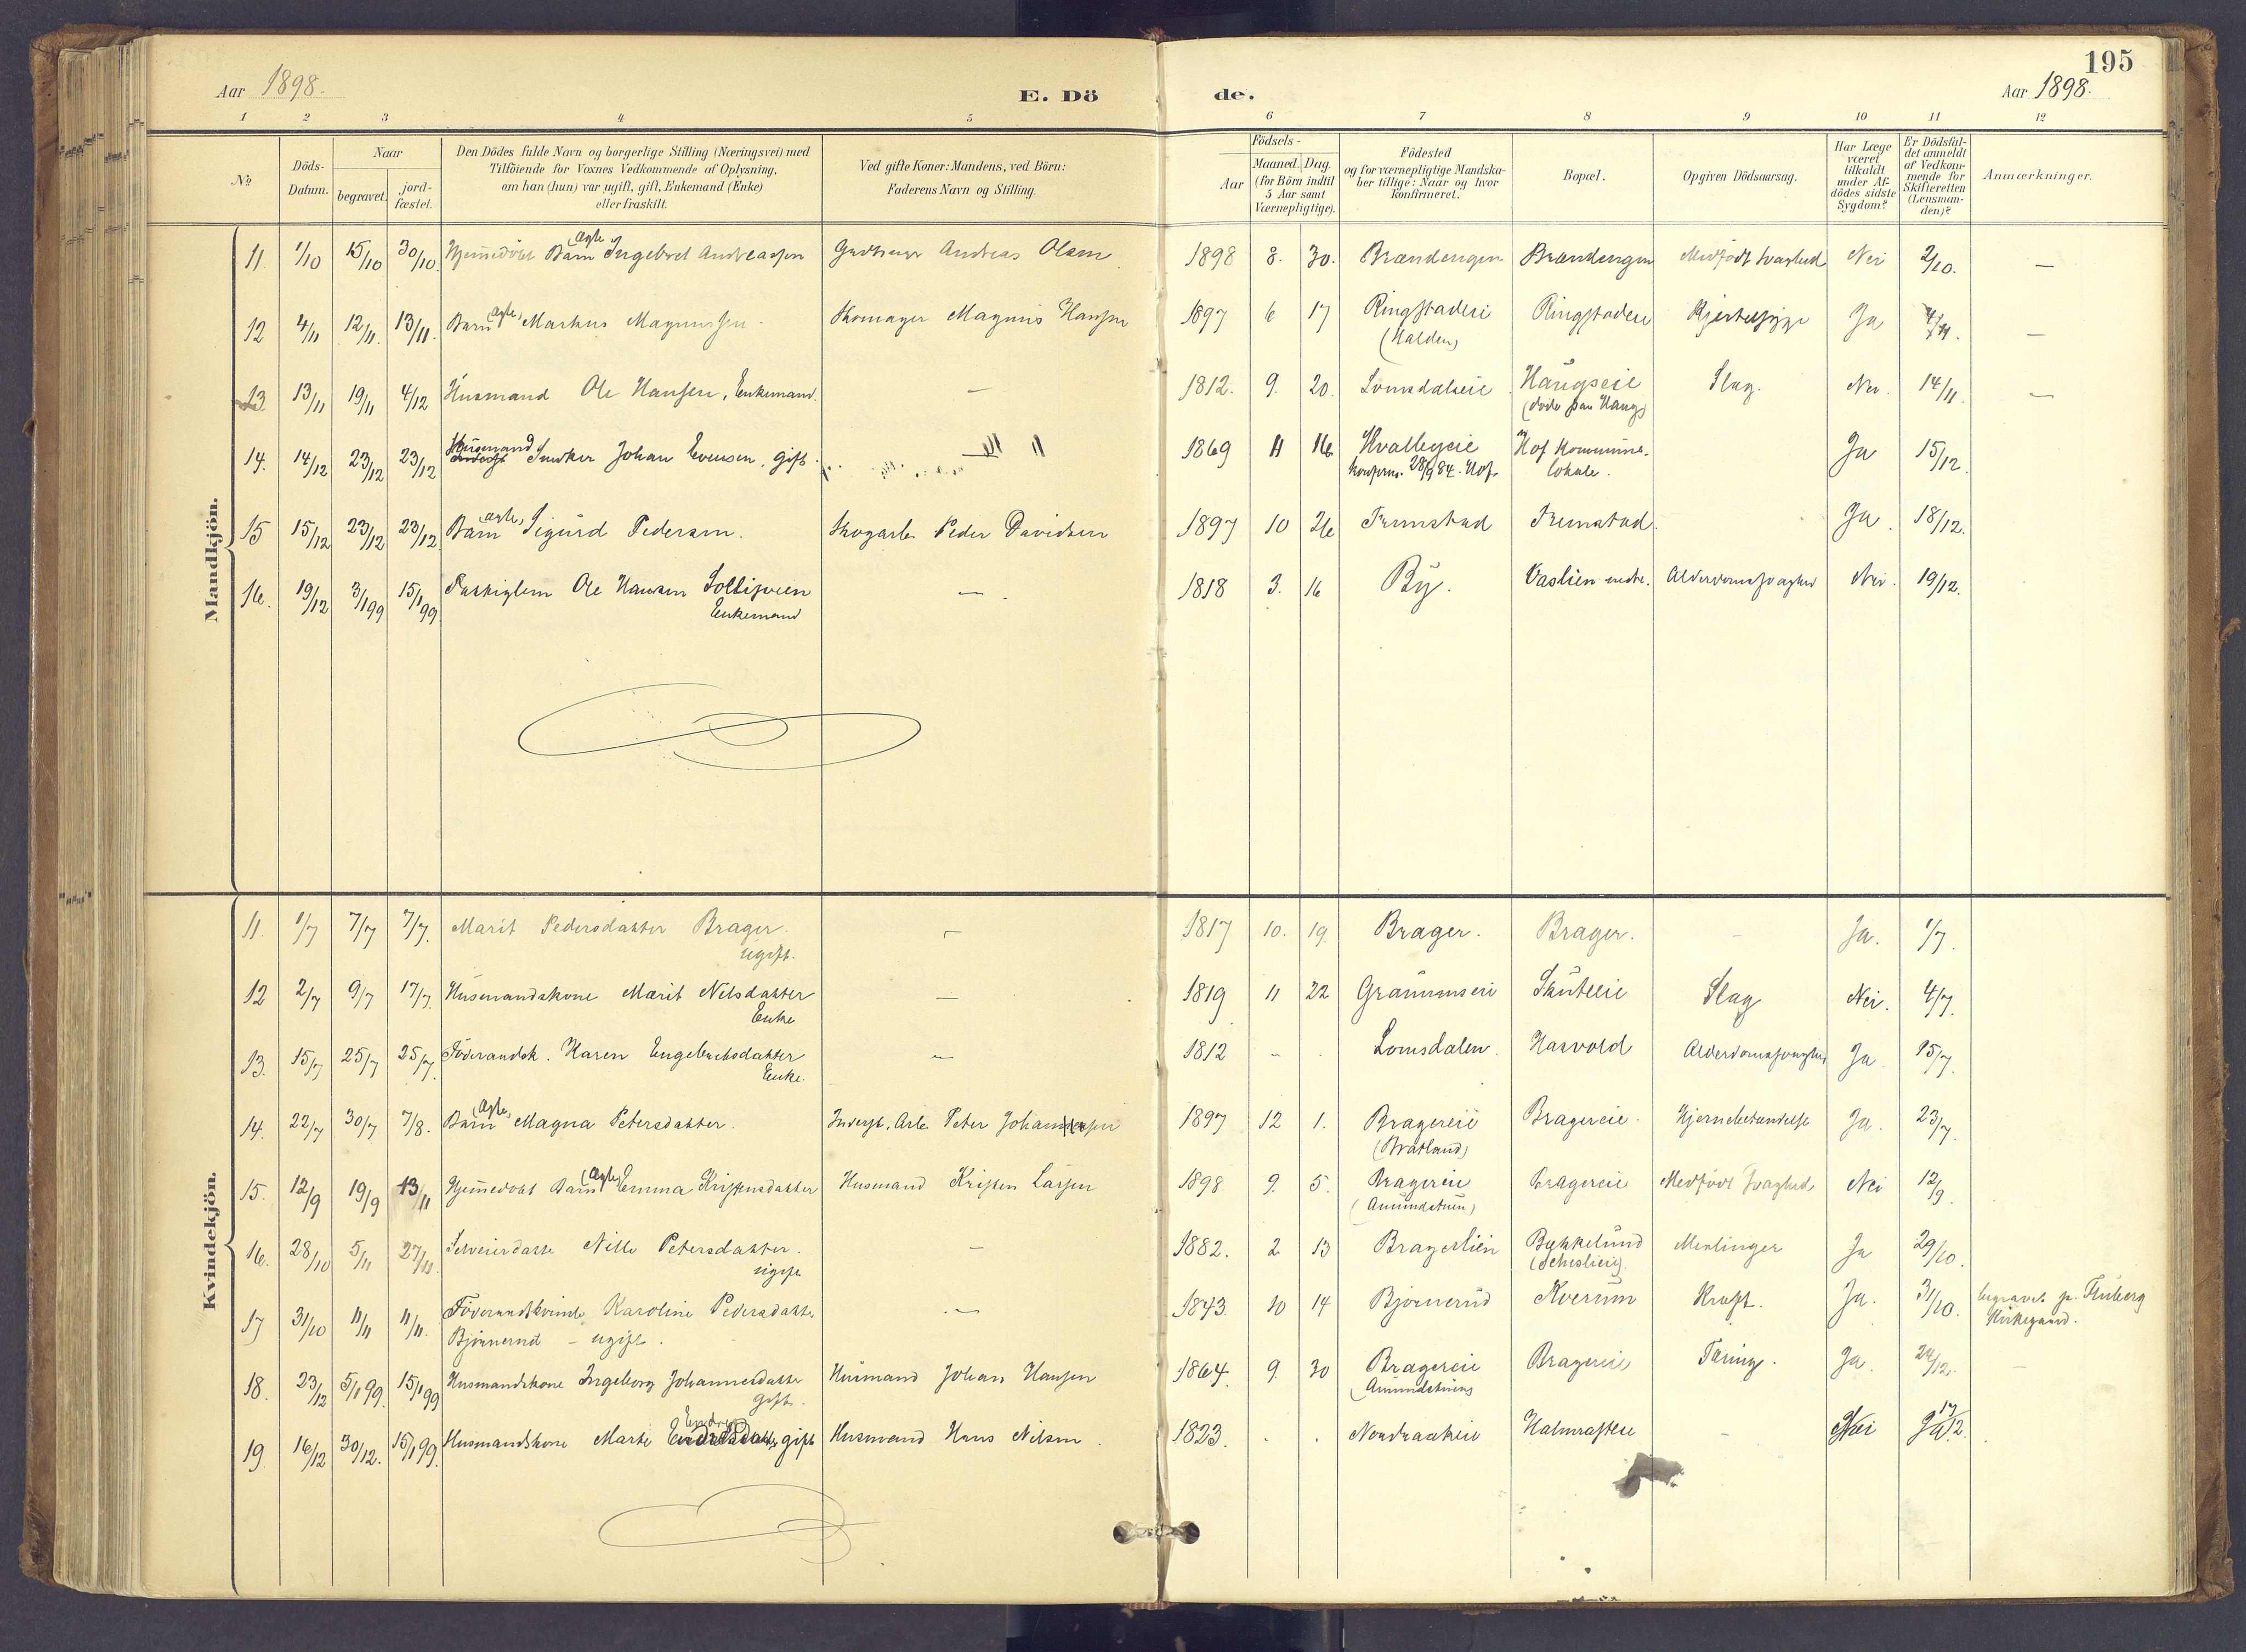 195
Aar 1898.
E. Dö
de.
Aar 1898.
1 2 3 4 5 6 7 8 9 10 11 12
No
Döds-Datum.
Naar
begravet.
jord-fæstet.
Den Dödes fulde Navn og borgerlige Stilling (Næringsvei) med
Tilföiende for Voxnes Vedkommende af Oplysning,
om han (hun) var ugift, gift, Enkemand (Enke)
eller fraskilt.
Ved gifte Koner: Mandens, ved Börn:
Faderens Navn og Stilling.
Födsels-
Aar
Maaned. Dag.
(for Börn indtil
5 Aar samt
Værnepligtige).
Födested
og for værnepligtige Mandska-
ber tillige: Naar og hvor
konfirmeret.
Bopæl.
Opgiven Dödsaarsag.
Har Læge
været
tilkaldt
under Af-
dödes sidste
Sygdom?
Er Dödsfal-
det anmeldt
af Vedkom-
mende for
Skifteretten
(Lensman-
den)?
Anmærkninger.
Mandkjön.
11. 1/10 15/10 30/10. Hjemmedöbt Barn (ægte) Ingebret Andreassen Andreas Olsen 1898 8. 30. Brændengen Brændengen Medfödt Svaghed Nei 2/10. —
12 4/11 12/11. 13/11. Barn (ægte) Markus Magnussen Skomager Magnus Hansen 1897 6 17 Ringstaderi Ringstaderi Hjertesyge Ja 4/11. —
(Halden)
13 13/11 19/11 4/12 Husmand Ole Hansen, Enkemand. — 1812. 9. 20. Lomsdaleie Haugseie Slag. Nei. 14/11. —
(döde paa Haug)
14. 14/12 23/12 23/12 Husmand Snedker Johan Evensen, gift. — 1869 11 16 Hvalbyeie Hof Kommune- Ja 15/12.
konfirm. 28/9 84. Hof. lokale.
15 15/12 23/12 23/12 Barn (ægte) Sigurd Pedersen. Skogarb. Peder Davidsen 1897 10 26 Fremstad Fremstad. Ja. 18/12.
16. 19/12 3/1 99 15/1 99 Ole Hansen — 1818 3. 16 By. Vaslien nedre. Alderdomssvaghed Nei. 19/12.
Enkemand
Kvindekjön.
11. 1/7 7/7 7/7. Marit Pedersdatter Brager. — 1817 10. 19. Brager. Brager. — Ja. 1/7.
ugift.
12 2/7 9/7 17/7. Husmandskone Marit Nilsdatter — 1819 11 22 Skuteeie Slag Nei. 4/7.
Enke
13. 15/7 25/7 25/7. Föderaadsk. Karen Engebretsdatter — 1812 - . Lomsdalen. Hasvold Alderdomssvaghed Ja 15/7.
Enke.
14. 22/7 30/7 7/8. Barn (ægte) Magna Petersdatter. Inderst. Arb. Peter Johannessen 1897 12 1. Bragereie Bragereie. Hjernebetændelse Ja. 23/7.
(Bratland)
15. 12/9 19/9 13/11 Hjemmedöbt Barn (ægte) Emma Kristensdatter Husmand Kristen Larsen 1898 9. 5. Bragereie Bragereie Medfödt Svaghed Nei 12/9.
(Amundstuen)
16. 28/10 5/11 27/11. Selveierdatte Nille Petersdatter. — 1882. 2 13 Bragerlien Bækkelund Ja 29/10.
ugift
17 31/10 11/11 11/11. Föderaadskvinde Karoline Pedersdatte — 1843. 10 14 Bjørnerud Kverum Kræft. Ja. 31/10. begravet p. Fluberg
Bjørnerud — ugift. Kirkegaard.
18. 23/12 5/1 99. 15/1 99 Husmandskone Ingeborg Johannesdatte Husmand Johan Hansen 1864. 9. 30 Bragereie Bragereie Tæring. Ja. 24/12. —
gift. (Amundstuen)
19. 16/12 30/12. 15/1 99. Husmandskone Marte gift Husmand Hans Nilsen. 1823. . . Nordraakeie Halmrasteie — Nei 17/12.